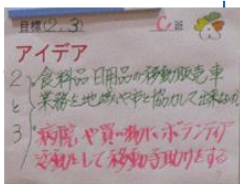 目標(2、3) C 班
アイデア
2と3
・食料品日用品の移動販売車
業務を地域や市と協力して出来るの
・病院や買い物にボランティア
活動をして移動手助けをする